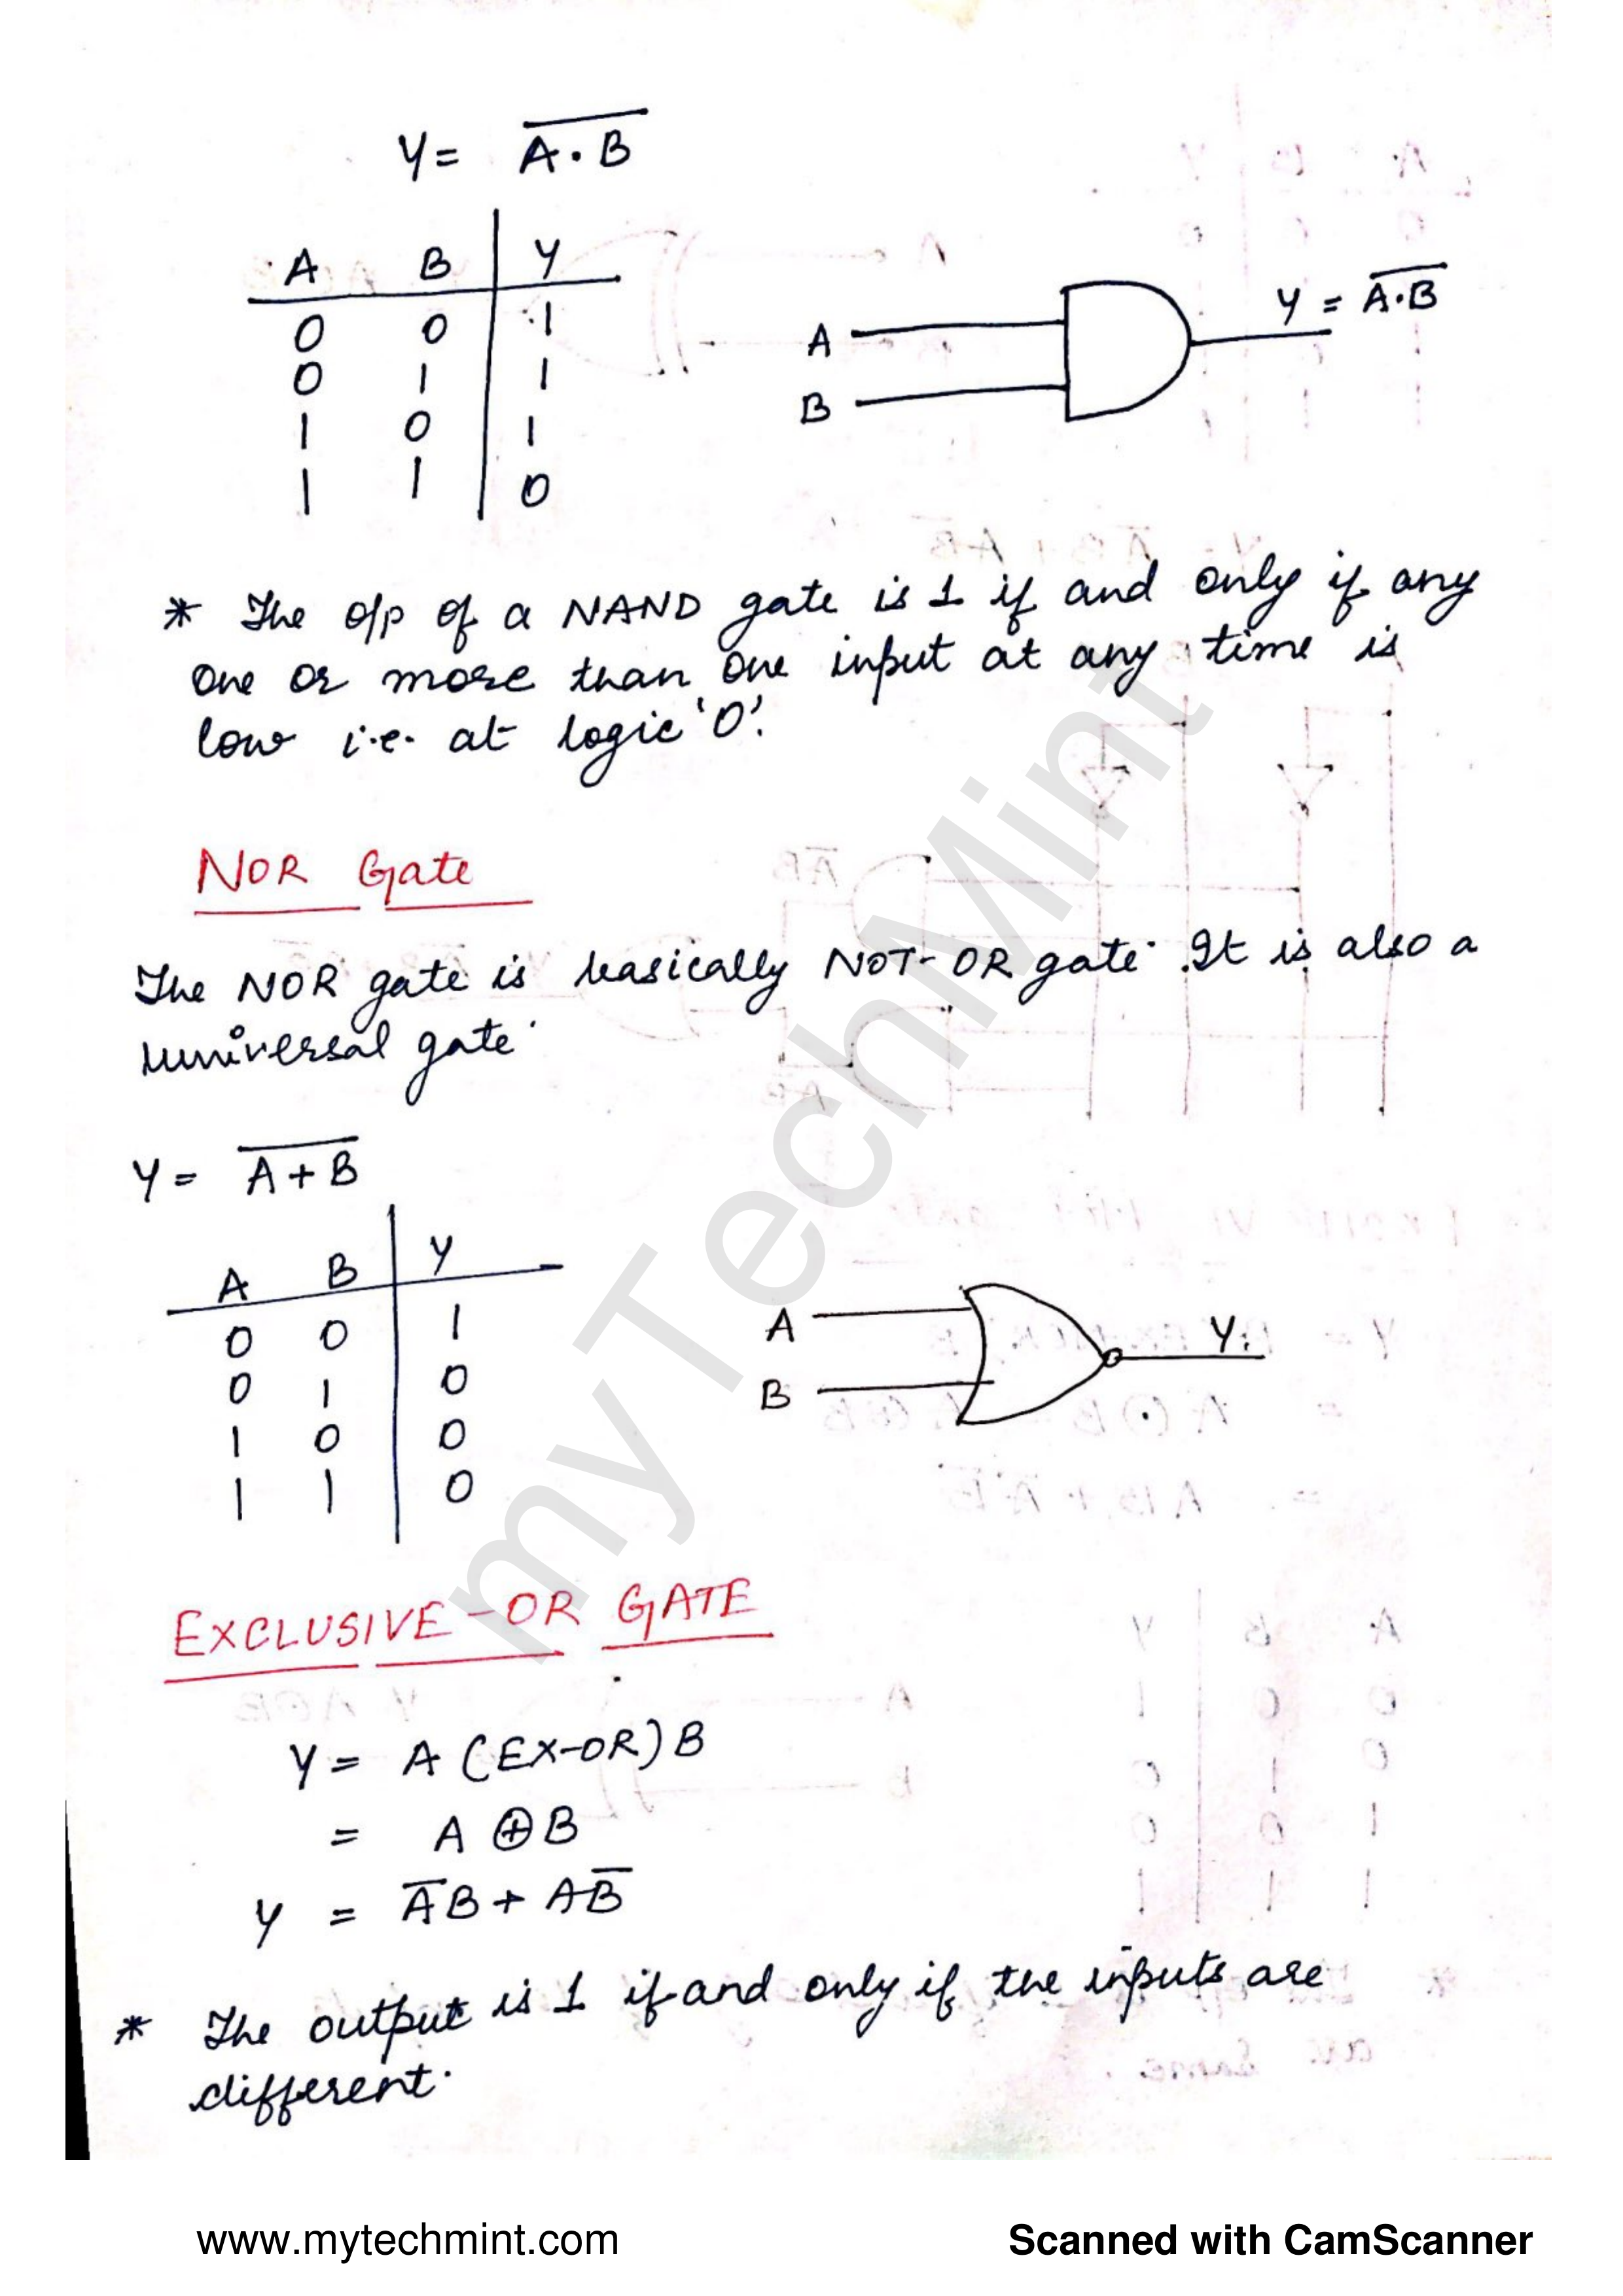 Y = \overline{A · B}
A B Y
0 0 1
0 1 1
1 0 1
1 1 0
A
B
Y = \overline{A·B}
* The o/p of a NAND gate is 1 if and only if any
one or more than one input at any time is
low i.e. at logic '0'.
NOR Gate
The NOR gate is basically NOT-OR gate. It is also a
universal gate.
Y = \overline{A + B}
A B Y
0 0 1
0 1 0
1 0 0
1 1 0
A
B
Y:
EXCLUSIVE-OR GATE
Y = A (EX-OR) B
= A ⊕ B
Y = \overline{A}B + A\overline{B}
* The output is 1 if and only if the inputs are
different.
myTechMint
www.mytechmint.com
Scanned with CamScanner